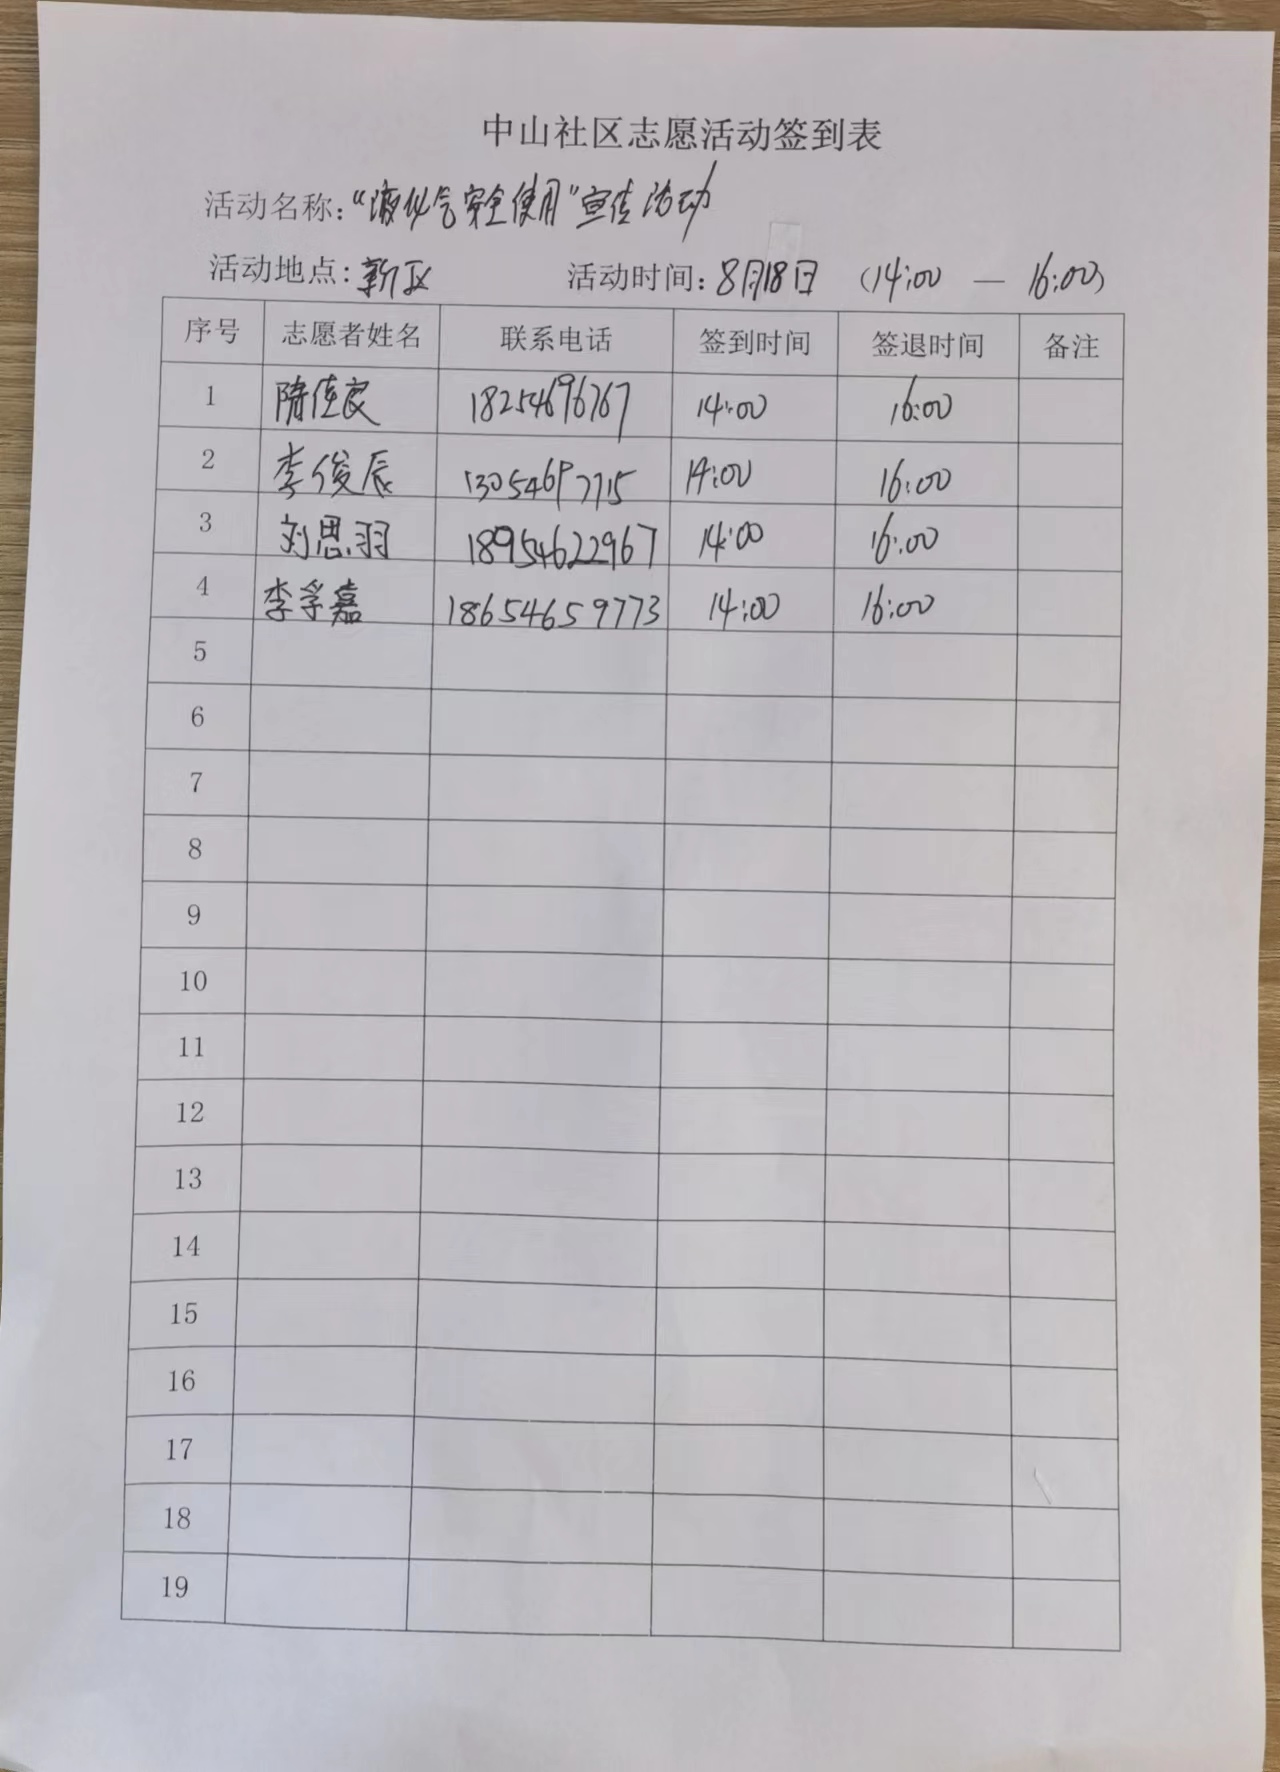 中山社区志愿活动签到表
活动名称：“液化气安全使用”宣传活动
活动地点：新区 活动时间：8月18日 （14:00 — 16:00）
序号 志愿者姓名 联系电话 签到时间 签退时间 备注
1 隋佳良 18254696767 14:00 16:00
2 李俊辰 13054697715 14:00 16:00
3 刘思羽 18954622967 14:00 16:00
4 李孚嘉 18654659773 14:00 16:00
5
6
7
8
9
10
11
12
13
14
15
16
17
18
19